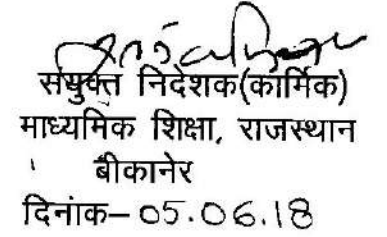 संयुक्त निदेशक(कार्मिक)
माध्यमिक शिक्षा, राजस्थान
बीकानेर
दिनांक– 05.06.18